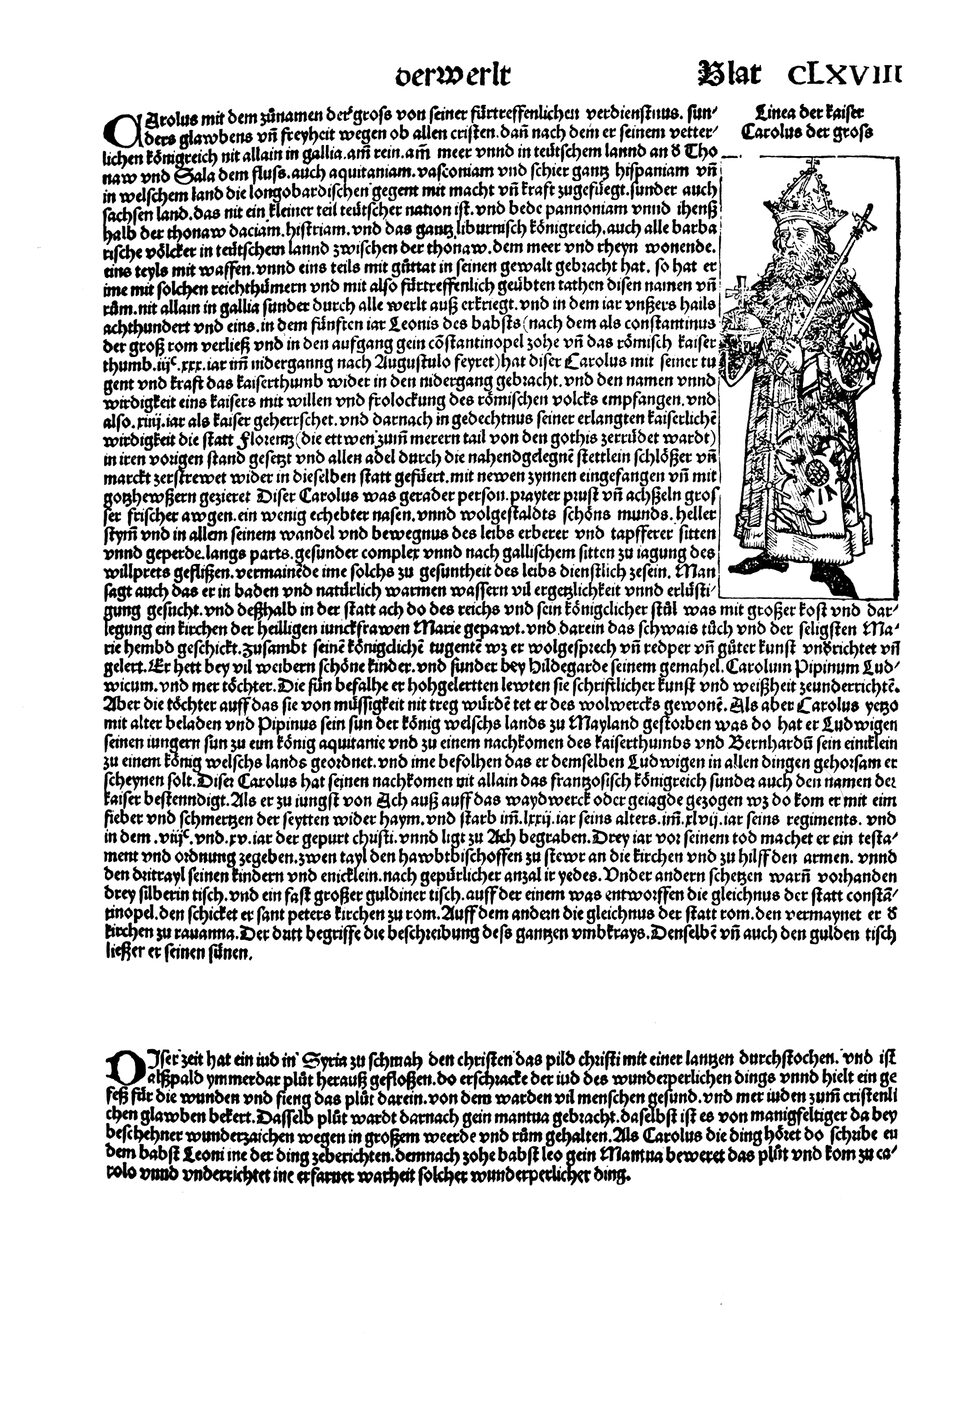 der werlt
Blat CLXVIII
Linea der kaiser
Carolus der groß
CArolus mit dem zůnamen der groß von seiner fürtreffenlichen verdienstnus. sun⸗
ders glawbens vñ freyheit wegen ob allen cristen. dañ nach dem er seinem vetter⸗
lichen königreich nit allain in gallia. am̃ rein. am̃ meer vnnd in teütschem lannd an d’ Tho
naw vnd Sala dem fluss. auch aquitaniam. vasconiam vnd schier gantz hispaniam vñ
in welschem land die longobardischen gegent mit macht vñ kraft zugefüegt. sunder auch
sachsen land. das nit ein kleiner teil teütscher nation ist. vnd bede pannoniam vnnd ihenß
halb der thonaw daciam. histriam. vnd das gantz liburnisch königreich. auch alle barba
rische völcker in teütschem lannd zwischen der thonaw. dem meer vnd rheyn wonende.
eins teyls mit waffen. vnnd eins teils mit güttat in seinen gewalt gebracht hat. so hat er
ime mit solchen reichthůmern vnd mit also fürtreffenlich geübten tathen disen namen vñ
rům. nit allain in gallia sunder durch alle werlt auß erkriegt. vnd in dem iar vnßers hails
achthundert vnd eins. in dem fünften iar Leonis des babsts (nach dem als constantinus
der groß rom verließ vnd in den aufgang gein cõstantinopel zohe vñ das römisch kaiser
thumb. iijᶜ. xxx. iar im̃ nidergannng nach Augustulo feyret) hat diser Carolus mit seiner tu
gent vnd kraft das kaiserthumb wider in den nidergang gebracht. vnd den namen vnnd
wirdigkeit eins kaisers mit willen vnd frolockung des römischen volcks empfangen. vnd
also. xiiij. iar als kaiser geherrschet. vnd darnach in gedechtnus seiner erlangten kaiserlichẽ
wirdigkeit die statt Florentz (die ettwen zum̃ merern tail von den gothis zerrüdet wardt)
in iren vorigen stand gesetzt vnd allen adel durch die nahendgelegnẽ stettlein schlößer vñ
marckt zerstrewet wider in dieselben statt gefüert. mit newen zynnen eingefangen vñ mit
gotzhewßern gezieret Diser Carolus was gerader person. prayter prust vñ achßeln gros
ser frischer awgen. ein wenig echebter nasen. vnnd wolgestaldts schöns munds. heller
stym̃ vnd in allem seinem wandel vnd bewegnus des leibs erberer vnd tapfferer sitten
vnnd geperde. langs parts. gesunder complex vnnd nach gallischem sitten zu iagung des
willprets geflißen. vermainẽde ime solchs zu gesuntheit des leibs dienstlich zesein. Man
sagt auch das er in baden vnd natürlich warmen wassern vil ergetzlichkeit vnnd erlüsti⸗
gung gesucht. vnd deßhalb in der statt ach do des reichs vnd sein königclicher stůl was mit großer kost vnd dar⸗
legung ein kirchen der heilligen iunckfrawen Marie gepawt. vnd darein das schwais tůch vnd der seligsten Ma⸗
rie hembd geschickt. Zusambt seinẽ königclichẽ tugentẽ wz er wolgesprech vñ redper vñ gůter kunst vnd’richtet vñ
gelert. Er hett bey vil weibern schöne kinder. vnd sunder bey Hildegarde seinem gemahel. Carolum Pipinum Lud⸗
wicum. vnd mer töchter. Die sün befalhe er hohgelertten lewten sie schriftlicher kunst vnd weißheit zeunderrichtẽ.
Aber die töchter auff das sie von müssigkeit nit treg würdẽ tet er des wolwercks gewonẽ. Als aber Carolus yetzo
mit alter beladen vnd Pipinus sein sun der könig welschs lands zu Mayland gestorben was do hat er Ludwigen
seinen iungern sun zu eim könig aquitanie vnd zu einem nachkomen des kaiserthumbs vnd Bernhardũ sein enicklein
zu einem könig welschs lands geordnet. vnd ime befolhen das er demselben Ludwigen in allen dingen gehorsam er
scheynen solt. Diser Carolus hat seinen nachkomen nit allain das frantzosisch königreich sunder auch den namen der
kaiser bestenndigt. Als er zu iungst von Ach auß auff das waydwerck oder geiagde gezogen wz do kom er mit eim
fieber vnd schmertzen der seytten wider haym. vnd starb im̃. lxxij. iar seins alters. im̃. xlvij. iar seins regiments. vnd
in dem. viijᶜ. vnd. xv. iar der gepurt christi. vnnd ligt zu Ach begraben. Drey iar vor seinem tod machet er ein testa⸗
ment vnd ordnung zegeben. zwen tayl den hawbtbischoffen zu stewr an die kirchen vnd zu hilff den armen. vnnd
den dritrayl seinen kindern vnd enicklein. nach gepürlicher anzal ir yedes. Vnder andern schetzen warñ vorhanden
drey silberin tisch. vnd ein fast großer guldiner tisch. auff der einem was entworffen die gleichnus der statt constã⸗
tinopel. den schicket er sant peters kirchen zu rom. Auff dem andern die gleichnus der statt rom. den vermaynet er d’
kirchen zu rauanna. Der dritt begriffe die beschreibung deß gantzen vmbkrays. Denselbẽ vñ auch den gulden tisch
ließer er seinen sünen.
DIser zeit hat ein iud in Syria zu schmah den christen das pild christi mit einer lantzen durchstochen. vnd ist
alßpald ymmerdar plůt herauß gefloßen. do erschracke der iud des wunderperlichen dings vnnd hielt ein ge
feß für die wunden vnd fieng das plůt darein. von dem warden vil menschen gesund. vnd mer iuden zum̃ cristenli
chen glawben bekert. Dasselb plůt wardt darnach gein mantua gebracht. daselbst ist es von manigfeltiger da bey
beschehner wunderzaichen wegen in großem weerde vnd rům gehalten. Als Carolus die ding höret do schribe er
dem babst Leoni ine der ding zeberichten. demnach zohe babst leo gein Mantua beweret das plůt vnd kom zu ca⸗
rolo vnnd vnderrichtet ine erfarner warheit solcher wunderperlicher ding.